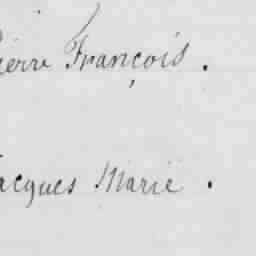 Pierre François.
Jacques Marie.